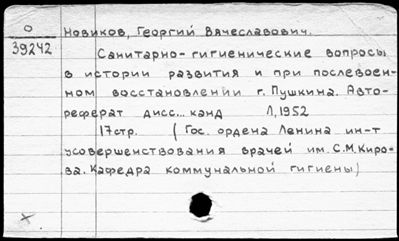 О
39242
Новиков, Георгий Вячеславович.
Санитарно-гигиенические вопросы
в истории развития и при послевоен-
ном восстановлении г. Пушкина. Авто-
реферат дисс... канд Л, 1952
17стр. (Гос. ордена Ленина ин-т
усовершенствования врачей им. С.М. Киро-
ва. Кафедра коммунальной гигиены)